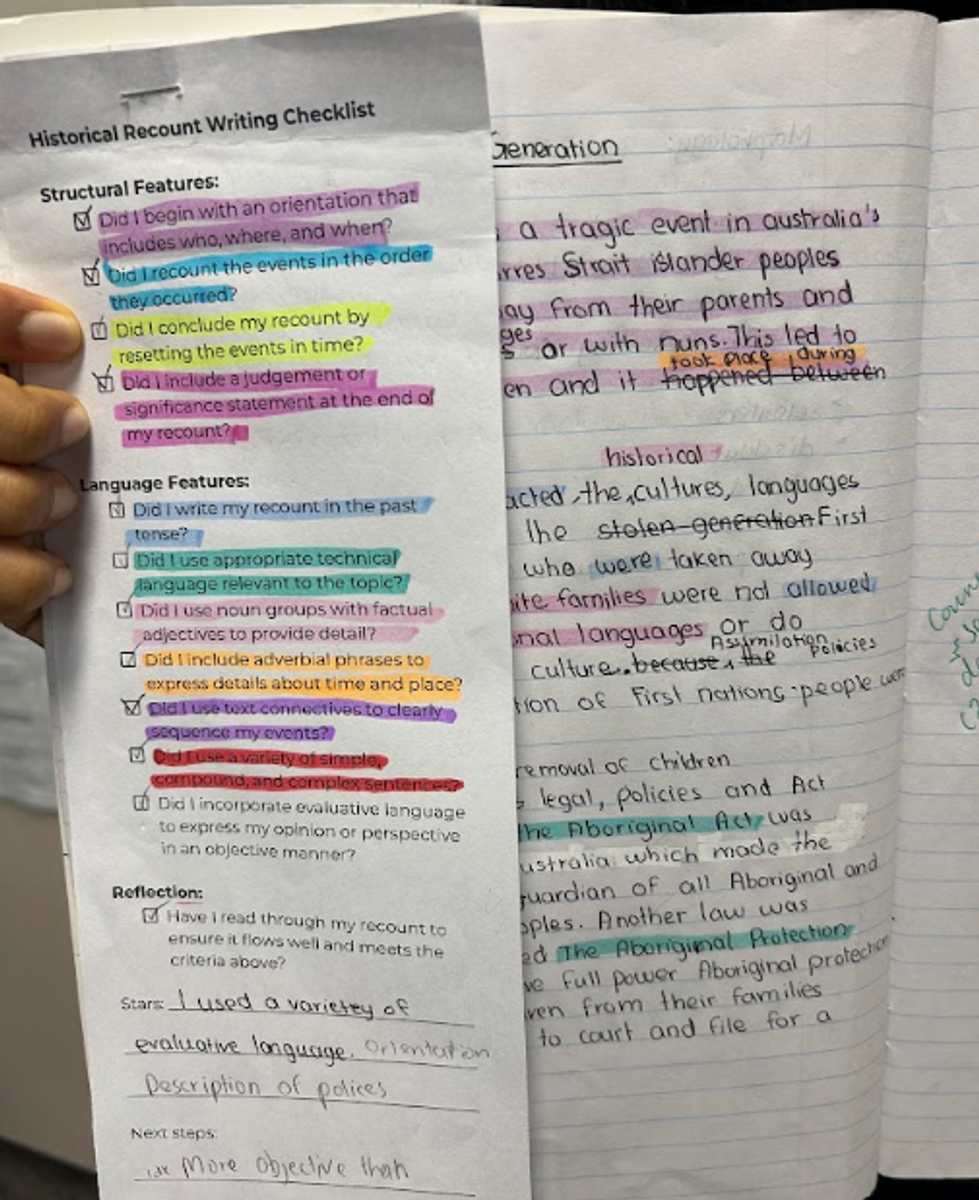 Historical Recount Writing Checklist
Structural Features:
Did I begin with an orientation that
includes who, where, and when?
Did I recount the events in the order
they occurred?
Did I conclude my recount by
resetting the events in time?
Did I include a judgement or
significance statement at the end of
my recount?
Language Features:
Did I write my recount in the past
tense?
Did I use appropriate technical
language relevant to the topic?
Did I use noun groups with factual
adjectives to provide detail?
Did I include adverbial phrases to
express details about time and place?
Did I use text connectives to clearly
sequence my events?
Did I use a variety of simple,
compound, and complex sentences?
Did I incorporate evaluative language
to express my opinion or perspective
in an objective manner?
Reflection:
Have I read through my recount to
ensure it flows well and meets the
criteria above?
Stars: I used a varietey of
evaluative language. Orientation
Description of polices
Next steps:
More objective than
Generation
a tragic event in australia's
rres Strait islander peoples
ay from their parents and
ges or with nuns. This led to
took place during
en and it happened between
historical
acted the cultures, languages
the stolen generation First
who were taken away
ite families were not allowed
onal languages or do
Assimilation policies
culture. because the
tion of First nations people were
removal of children
legal, policies and Act
the Aboriginal Act, was
ustralia which made the
guardian of all Aboriginal and
oples. Another law was
ed The Aboriginal Protection
ve full power Aboriginal protection
ven from their families
to court and file for a